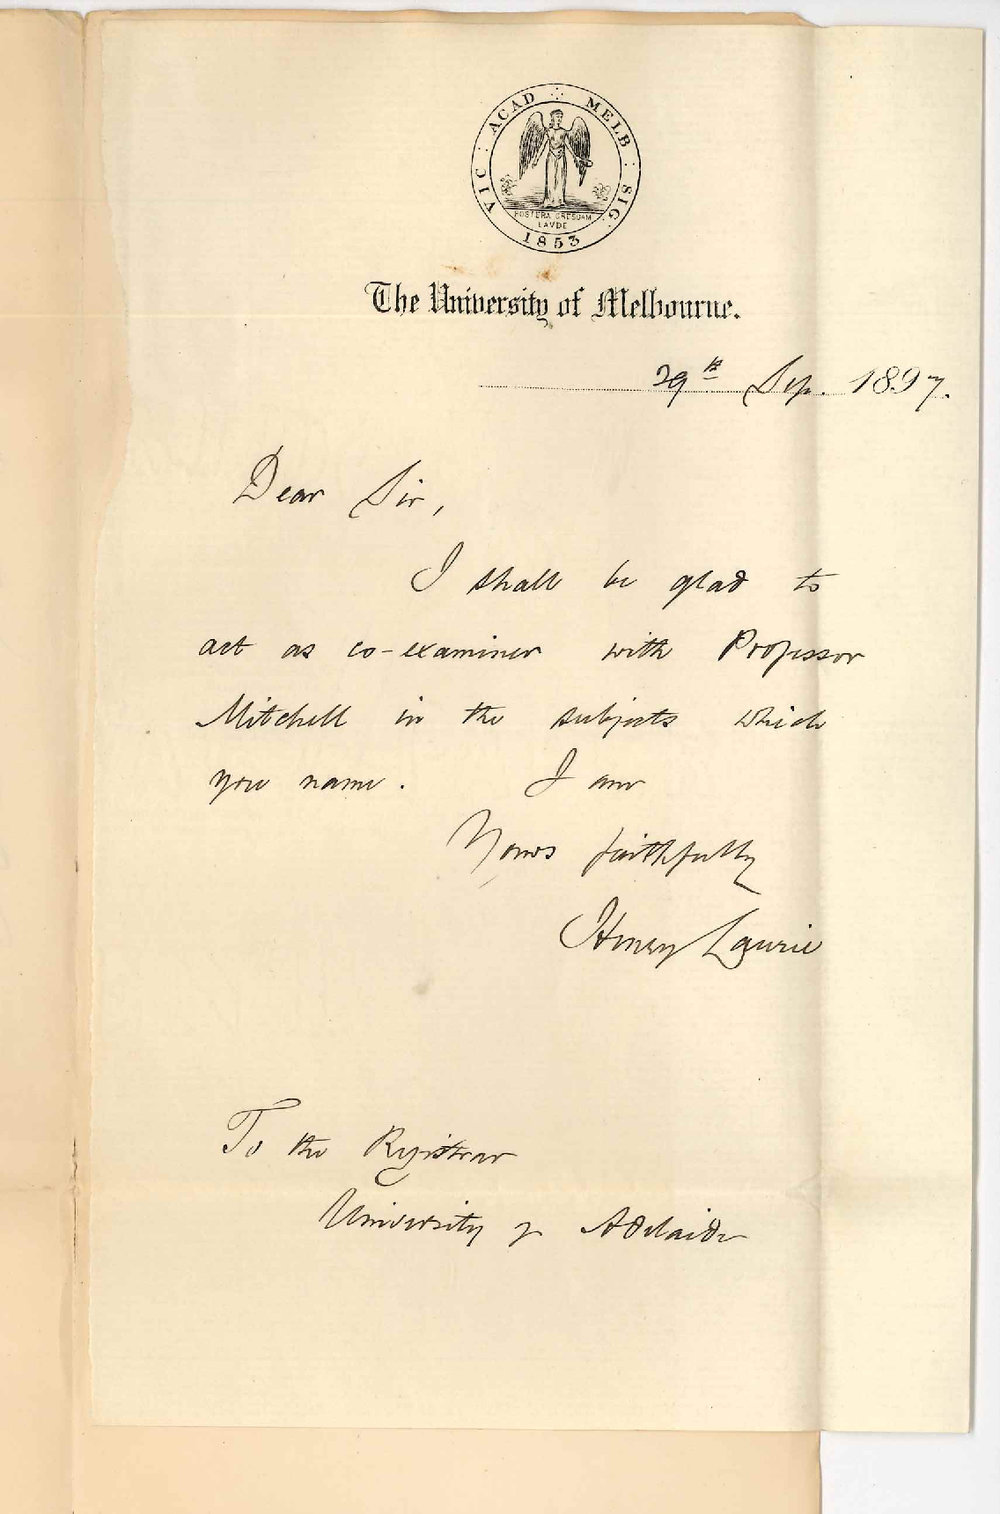 VIC : ACAD : MELB : SIG.
POSTERA CRESCAM
LAVDE
1853
The University of Melbourne.
29th Sep. 1897.
Dear Sir,
I shall be glad to
act as co-examiner with Professor
Mitchell in the subjects which
you name. I am
Yours faithfully
Henry Laurie
To the Registrar
University of Adelaide